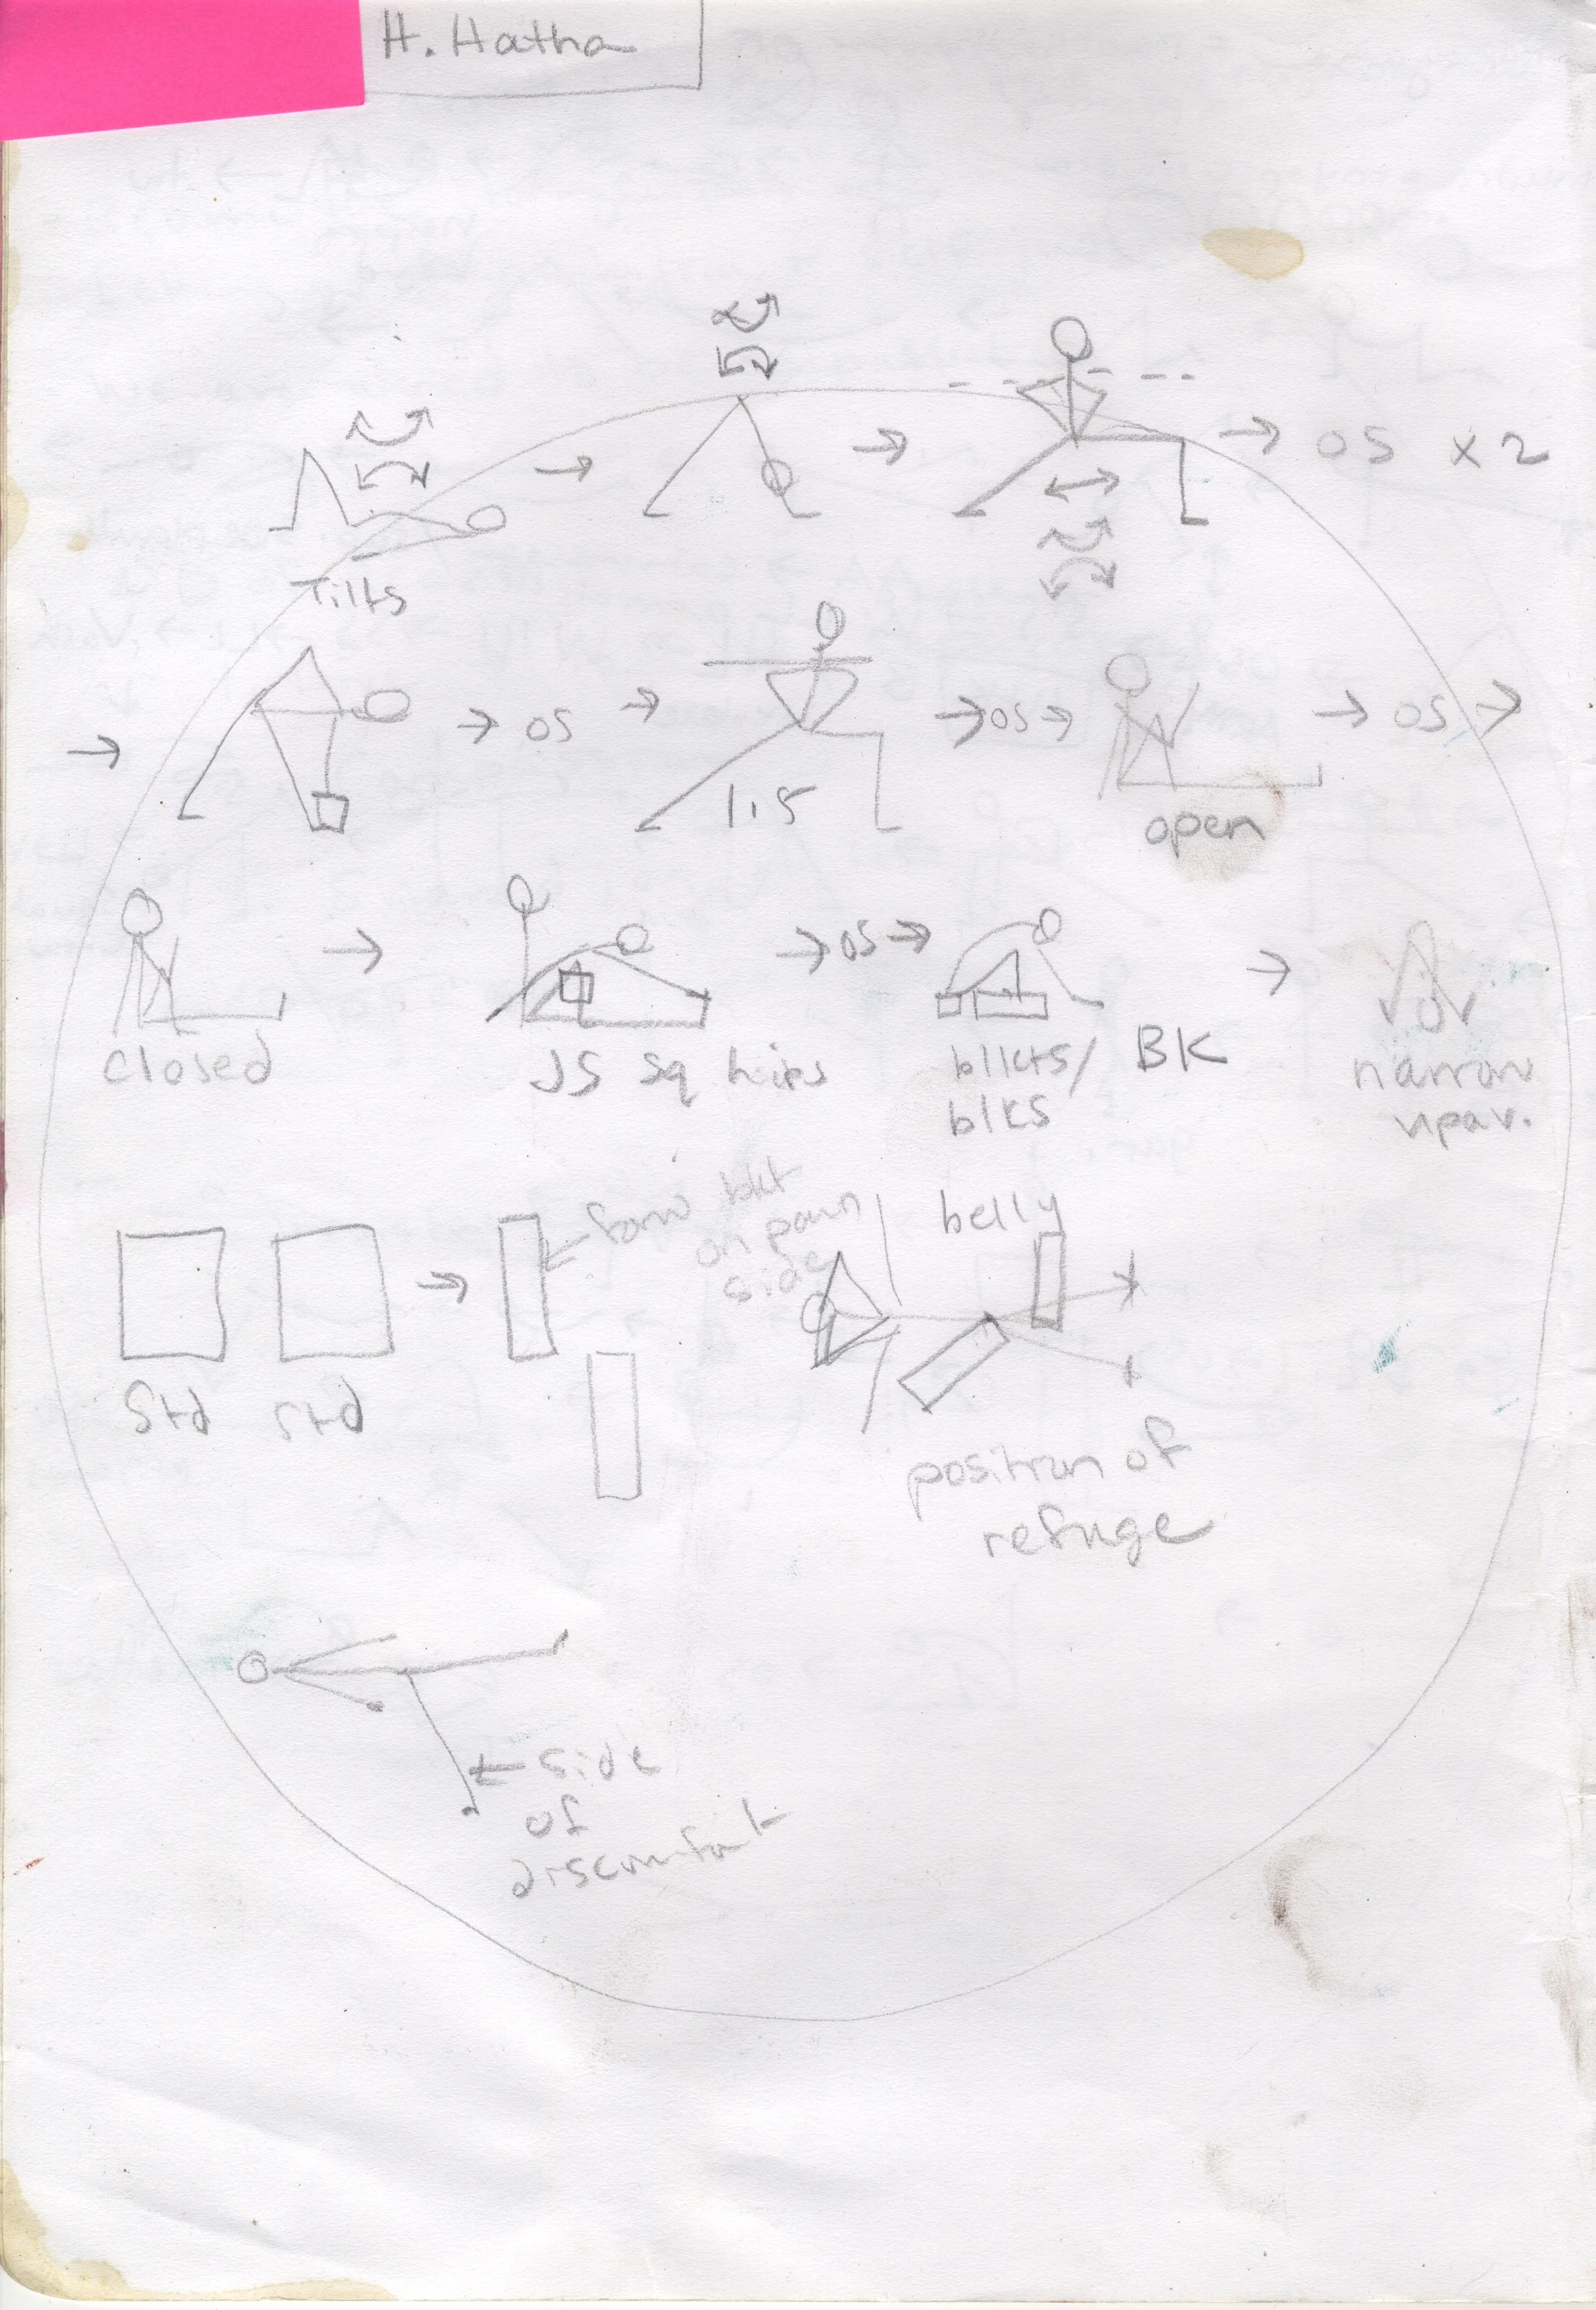 H. Hatha
→ → → OS x 2
Tilts
→ → OS → → OS → → OS →
1.5
open
→ → OS → →
closed
JS sq hips
blkts/ BK
blks
narrow
upav.
→
← bkt
on pain
side
belly
Std Std
position of
refuge
← side
of
discomfort